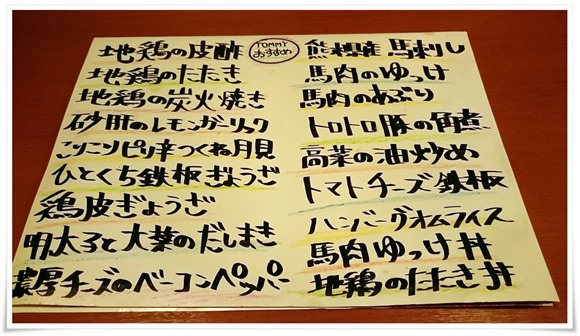 地鶏の皮酢
地鶏のたたき
地鶏の炭火焼き
砂肝のレモンガーリック
こりこりピリ辛つくね月見
ひとくち鉄板ぎょうざ
鶏皮ぎょうざ
明太子と大葉のだしまき
濃厚チーズのベーコンペッパー
TOMMY
おすすめ
熊本産 馬刺し
馬肉のゆっけ
馬肉のあぶり
トロトロ豚の角煮
高菜の油炒め
トマトチーズ鉄板
ハンバーグオムライス
馬肉ゆっけ丼
地鶏のたたき丼